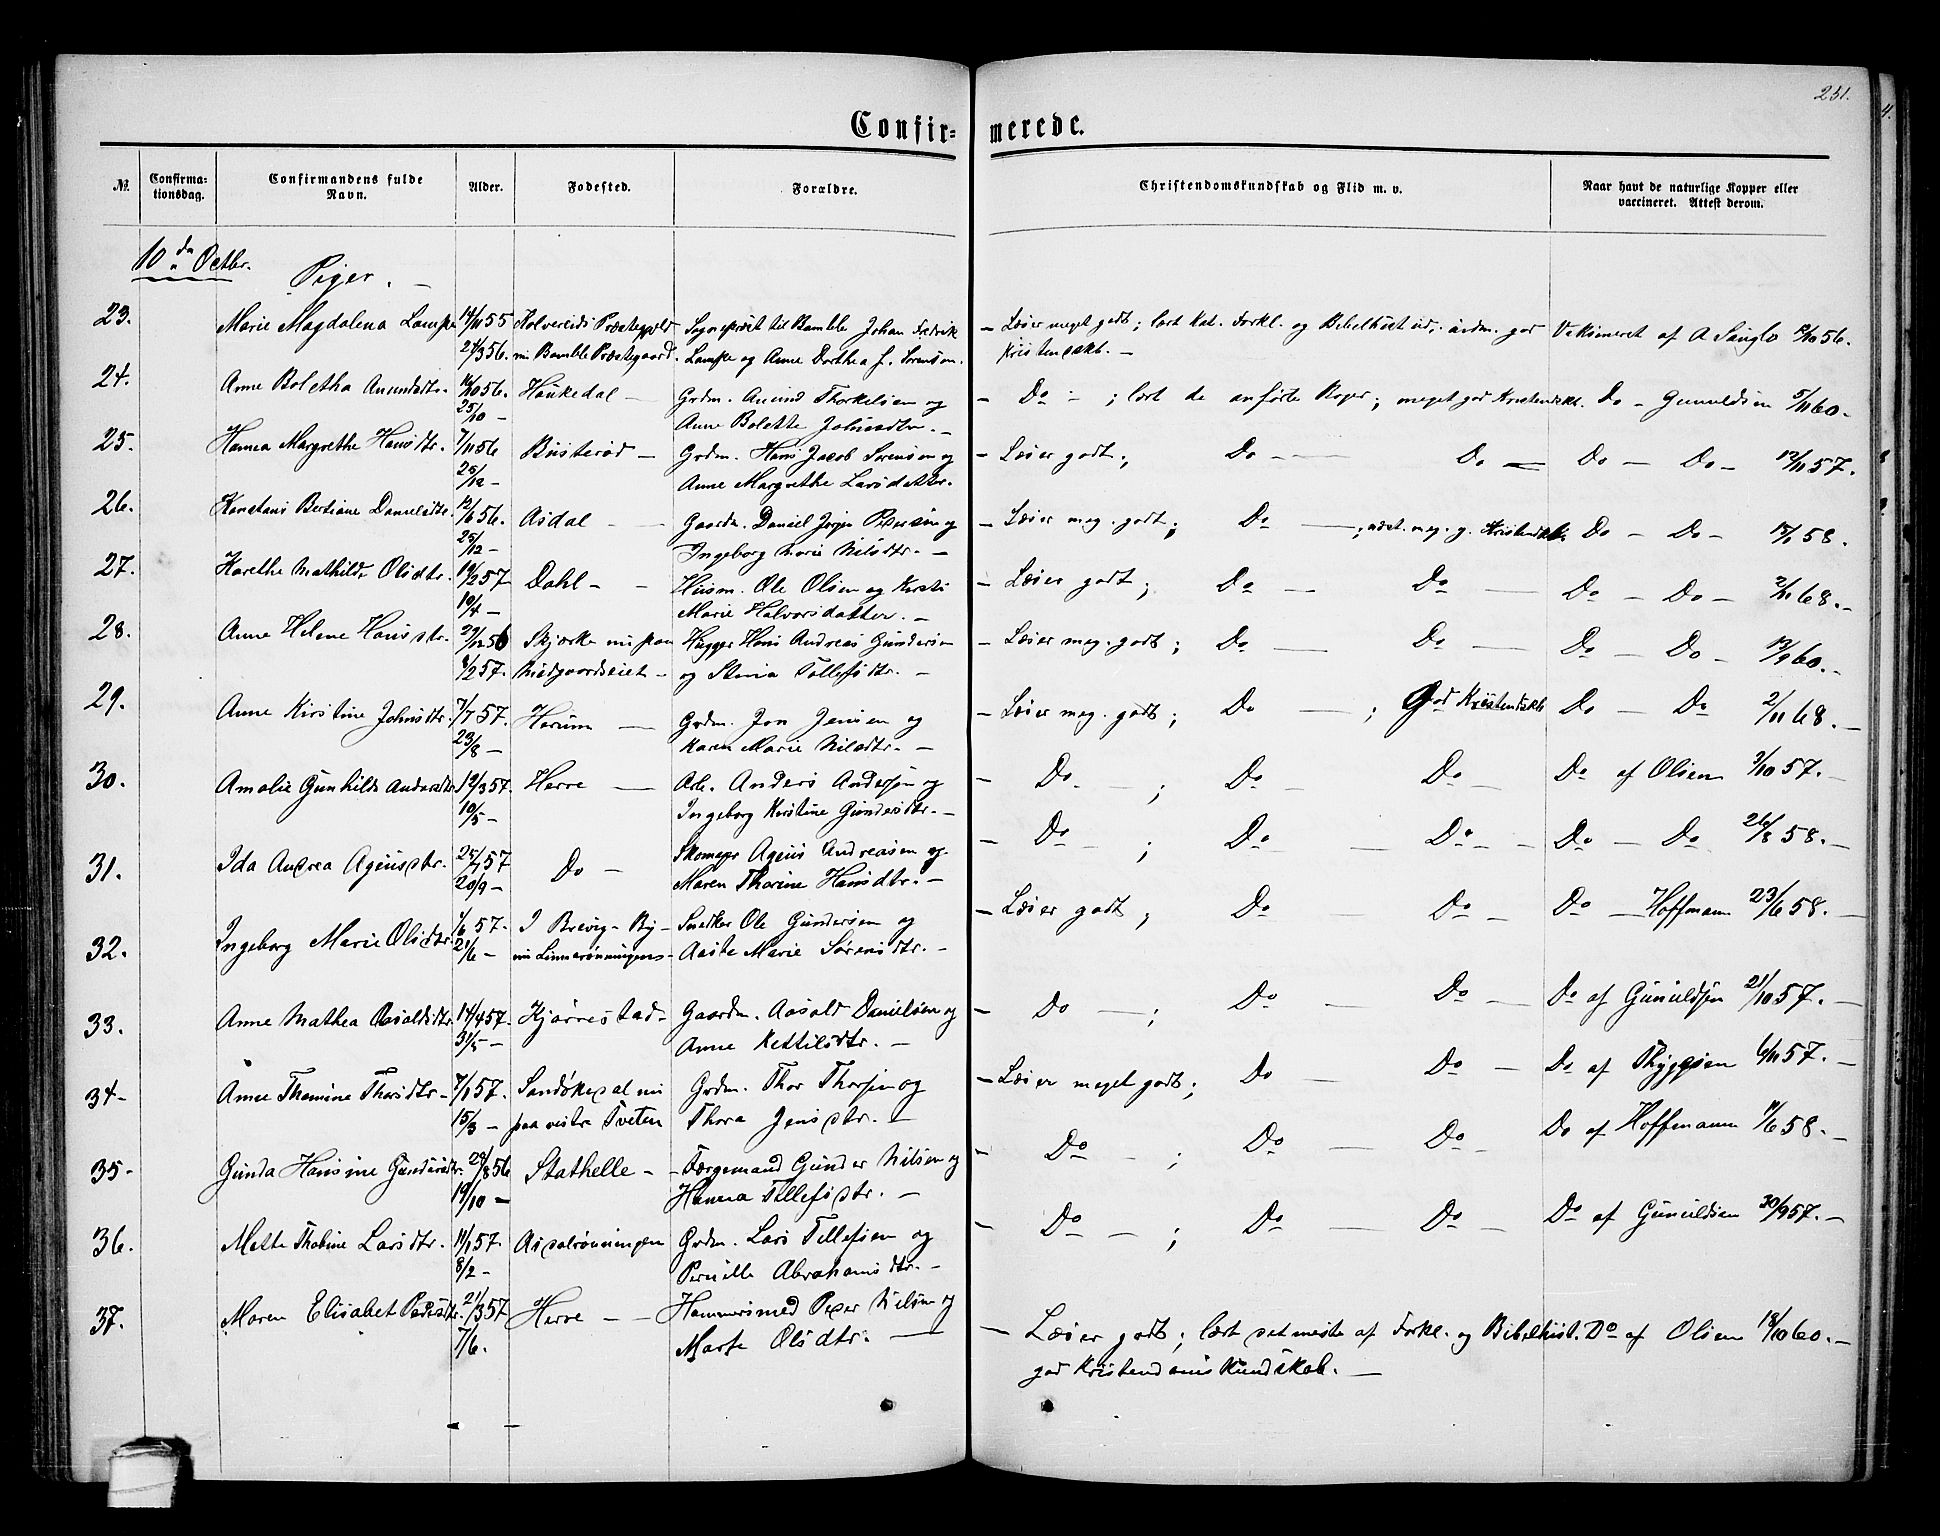 251.
Confir- merede.
No. Confirma-tionsdag. Confirmandens fulde Navn. Alder. Fødested. Forældre. Christendomskundskab og Flid m. v. Naar havt de naturlige Kopper eller vaccineret. Attest derom.
10de Octbr. Piger. -
23. Marie Magdalena Lampe 14/11 55 Kolvereids Præstegjeld Sogneprest til Bamble Johan Fredrik - Læser meget godt; lært Kat. Forkl. og Bibelhist. ud; udm. god Vaksineret af A 9/10 56.
24/3 56. nu Bamble Præstegaard. Lampe og Anne Dorthea f. Sørensen. Kristendskb. -
24. Anne Boletha Anundsdtr. 16/10 56. Haukedal - Grdm. Anund Thorkelsen og - Do - ; lært de anførte Bøger; meget god Kristendskb. Do - Gunuldsen 5/11 60 -
25/10 - Anne Bolette Johnsdtr. -
25. Hanna Margrethe Hansdtr. 7/11 56 Busterød - Grdm. Hans Jacob Sørensen og - Læser godt; Do - Do - Do - Do - 12/11 57.
25/12 - Anne Margrethe Larsdatter.
26. Konstans Bertiane Danielsdtr. 12/6 56. Asdal - Gaardm. Daniel Jørgen Petersen og - Læser meg. godt; Do - ; næst. meg. g. Kristendskb. Do - Do - 58.
25/12 - Ingeborg Marie Nilsdtr. -
27. Karethe Mathilde Olsdtr. 19/2 57 Dahl - Husm. Ole Olsen og Kirsti - Læser godt; Do - Do - Do - Do - 2/11 68. -
19/4 - Marie Halvorsdatter. -
28. Anne Helene Hansdtr. 27/12 56 Skjerke nu paa Hugger Hans Andreas Gundersen - Læser meg. godt; Do - Do - Do - Do - 12/9 60. -
8/2 57. Midgaardseiet - og Stina Tollefsdtr. -
29. Anne Kirstine Johnsdtr. 7/7 57. Hærum - Grdm. Jon Jensen og - Læser meg. godt; Do - ; God Kristendskb. Do - Do 2/11 68. -
23/8 - Karen Marie Nilsdtr. -
30. Amalie Gunhilde Andersdtr. 19/3 57. Herre - Arb. Anders Andersen og - Do - ; Do - Do - Do af Olsen 9/10 57. -
10/5 - Ingeborg Kirstine Gundersdtr. -
31. Ida Andrea Ageusdtr. 25/7 57 Do - Skomager Ageus Andreasen og - Do - ; Do - Do - Do - Do 26/8 58. -
20/9 - Maren Thorine Hansdtr. -
32. Ingeborg Marie Olsdtr. 1/6 57. I Brevig By - Snedker Ole Gundersen og - Læser godt; Do - Do - Do - Hoffmann 23/6 58. -
21/6 - nu Linnerønningen - Aaste Marie Sørensdtr. -
33. Anne Mathea Aasoldsdtr. 14/4 57. Kjørrestad - Gaardm. Aasold Danielsen og - Do - ; Do - Do - Do af Gunuldsen 21/10 57. -
31/5 - Anne Kettilsdtr. -
34 - Anne Thomine Thorsdtr - 7/1 57. Sandøkedal nu Grdm. Thor Thorsen og - Læser meget godt; Do - Do - Do af Thyggesen 6/11 57. -
15/3 - paa vestre Tveten Thora Jensdtr. -
35 - Gunda Hansine Gundersdtr. 29/8 56 Stathelle - Færgemand Gunder Nilsen og - Do - ; Do - Do - Do af Hoffmann 11/6 58. -
19/10 - Hanna Tollefsdtr. -
36. Mette Thobine Larsdtr. 11/1 57. Asdalrønningen Grdm. Lars Tillefsen og - Do - ; Do - Do - Do af Gunuldsen 30/9 57. -
8/2 - Pernille Abrahamsdtr. -
37. Maren Elisabet Pedersdtr. 21/3 57 Herre - Hammersmed Peder Nilsen og - Læser godt; lært det meste af Forkl. og Bibelhist. Do af Olsen 18/10 60. -
7/6. Marte Olsdtr. - god Kristendomskundskab. -